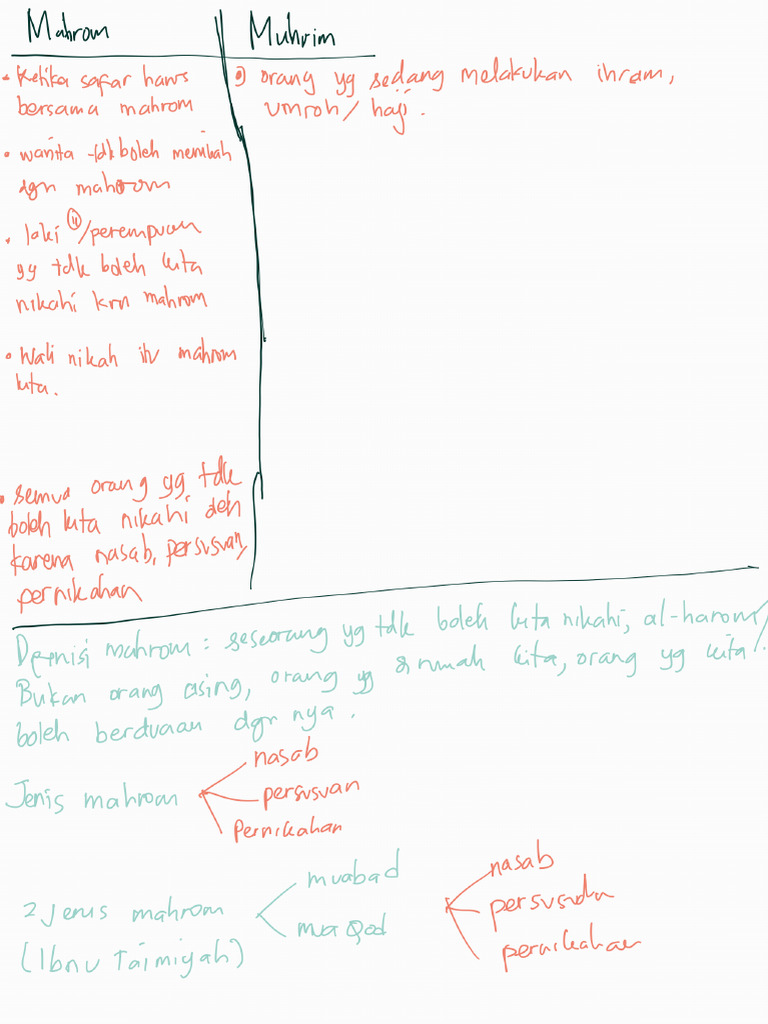 Mahrom
Muhrim
• Ketika safar harus
bersama mahrom
• wanita tdk boleh menikah
dgn mahrom
• laki"/perempuan
yg tdk boleh kita
nikahi krn mahrom
• Wali nikah itu mahrom
kita.
• semua orang yg tdk
boleh kita nikahi deh
karena nasab, persusuan,
pernikahan
orang yg sedang melakukan ihram,
umroh/haji.
Definisi mahrom : seseorang yg tdk boleh kita nikahi, al-harom/
Bukan orang asing, orang yg rumah kita, orang yg kita
boleh berduaan dgn nya.
Jenis mahrom
nasab
persusuan
Pernikahan
2 jenis mahrom
(Ibnu Taimiyah)
muabad
muaqod
nasab
persusuan
pernikahan